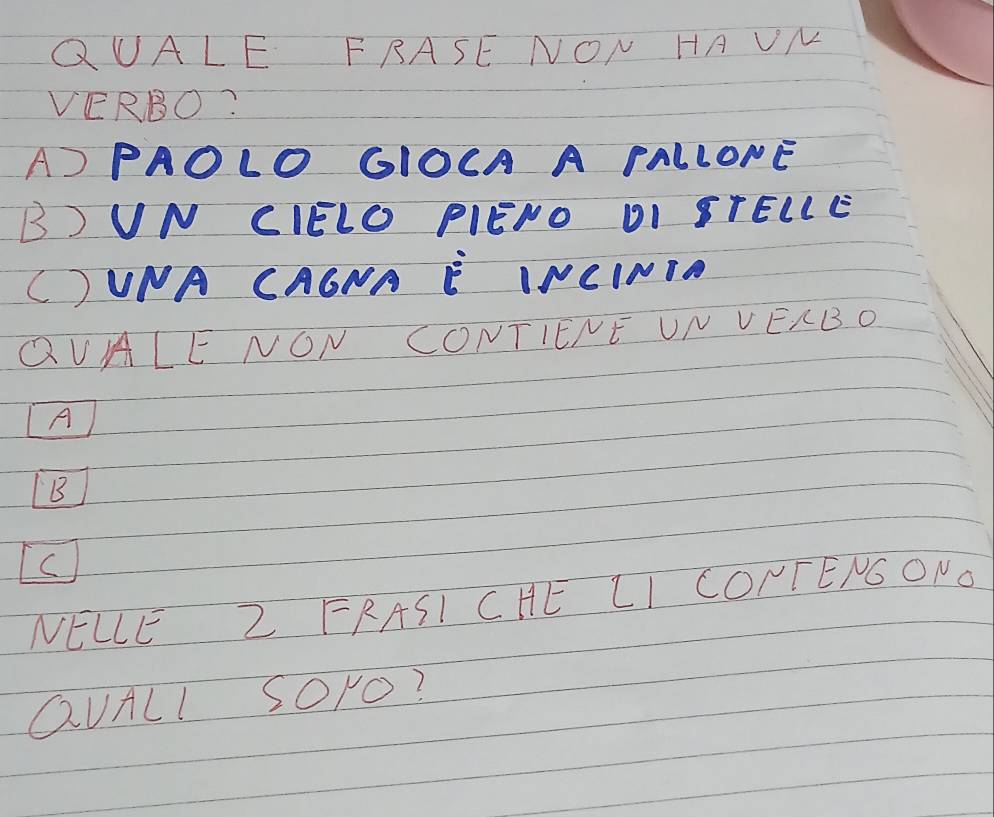 QUALE FRASE NON HA UN
VERBO?
A) PAOLO GIOCA A PALLONE
B) UN CIELO PIENO DI STELLE
C) UNA CAGNA È INCINTA
QUALE NON CONTIENE UN VERBO
A
B
C
NELLE 2 FRASI CHE LI CONTENGONO
QUALI SONO?